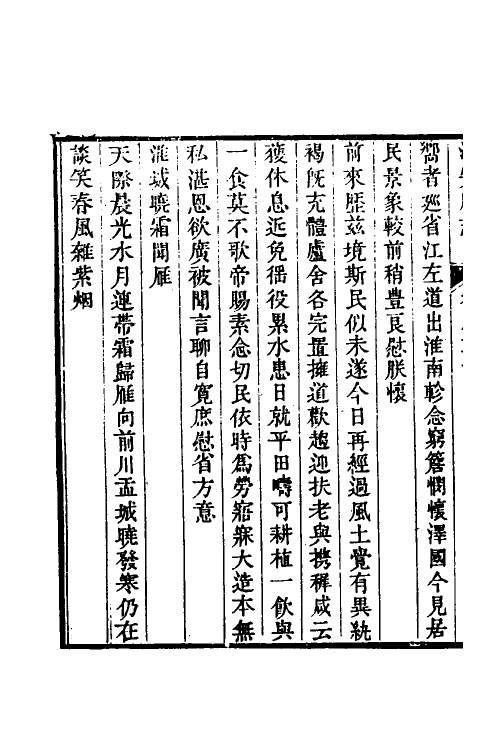 嚮者廵省江左道出淮南軫念窮簷惻懷澤國今見居
民景象較前稍豐良慰朕懷
前來歷兹境斯民似未遂今日再經過風土覺有異紈
褐旣充體廬舍各完置擁道歡趨迎扶老與携稺咸云
獲休息近免徭役累水患日就平田疇可耕植一飲與
一食莫不歌帝賜素念切民依時爲勞寤寐大造本無
私湛恩欲廣被聞言聊自寛庶慰省方意
淮城曉霜聞雁
天際晨光水月連帶霜歸雁向前川盂城曉發寒仍在
談笑春風雜紫烟